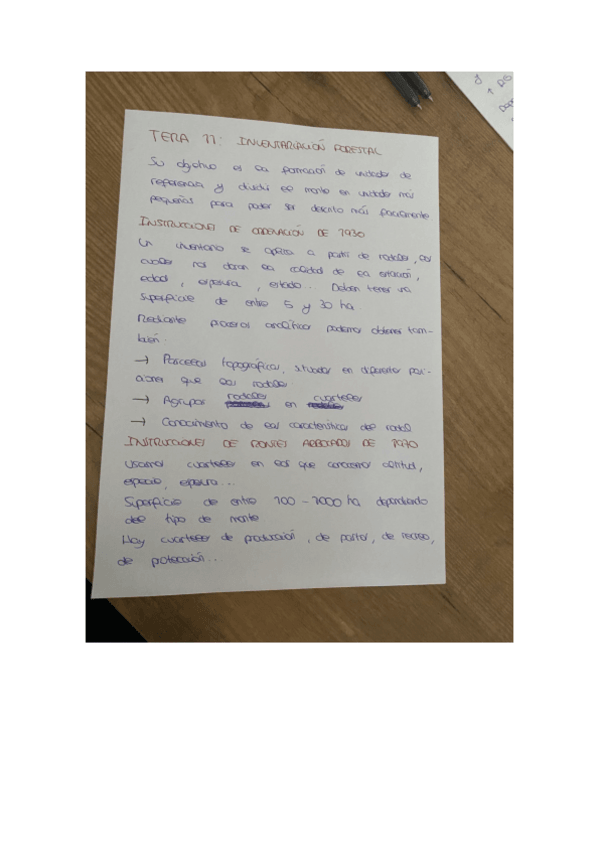 TEMA 11: INVENTARIACIÓN FORESTAL
Su objetivo es la formación de unidades de
referencia y dividir el monte en unidades más
pequeñas para poder ser descrito más fácilmente
INSTRUCCIONES DE ORDENACIÓN DE 1930
Un inventario se opera a partir de rodales, los
cuales nos daran la calidad de la estación,
edad, espesura, estado... Deben tener una
superficie de entre 5 y 30 ha.
Mediante procesos analíticos podemos obtener tam-
bién:
→ Parcelas topográficas, situadas en diferentes posi-
ciones que los rodales
→ Agrupar rodales en cuarteles
→ Conocimiento de las características del rodal
INSTRUCCIONES DE MONTES ARBOLADOS DE 1970
Usamos cuarteles en los que conocemos altitud,
especie, espesura...
Superficie de entre 100 - 1000 ha dependiendo
del tipo de monte
Hay cuarteles de producción, de pastos, de recreo,
de protección...